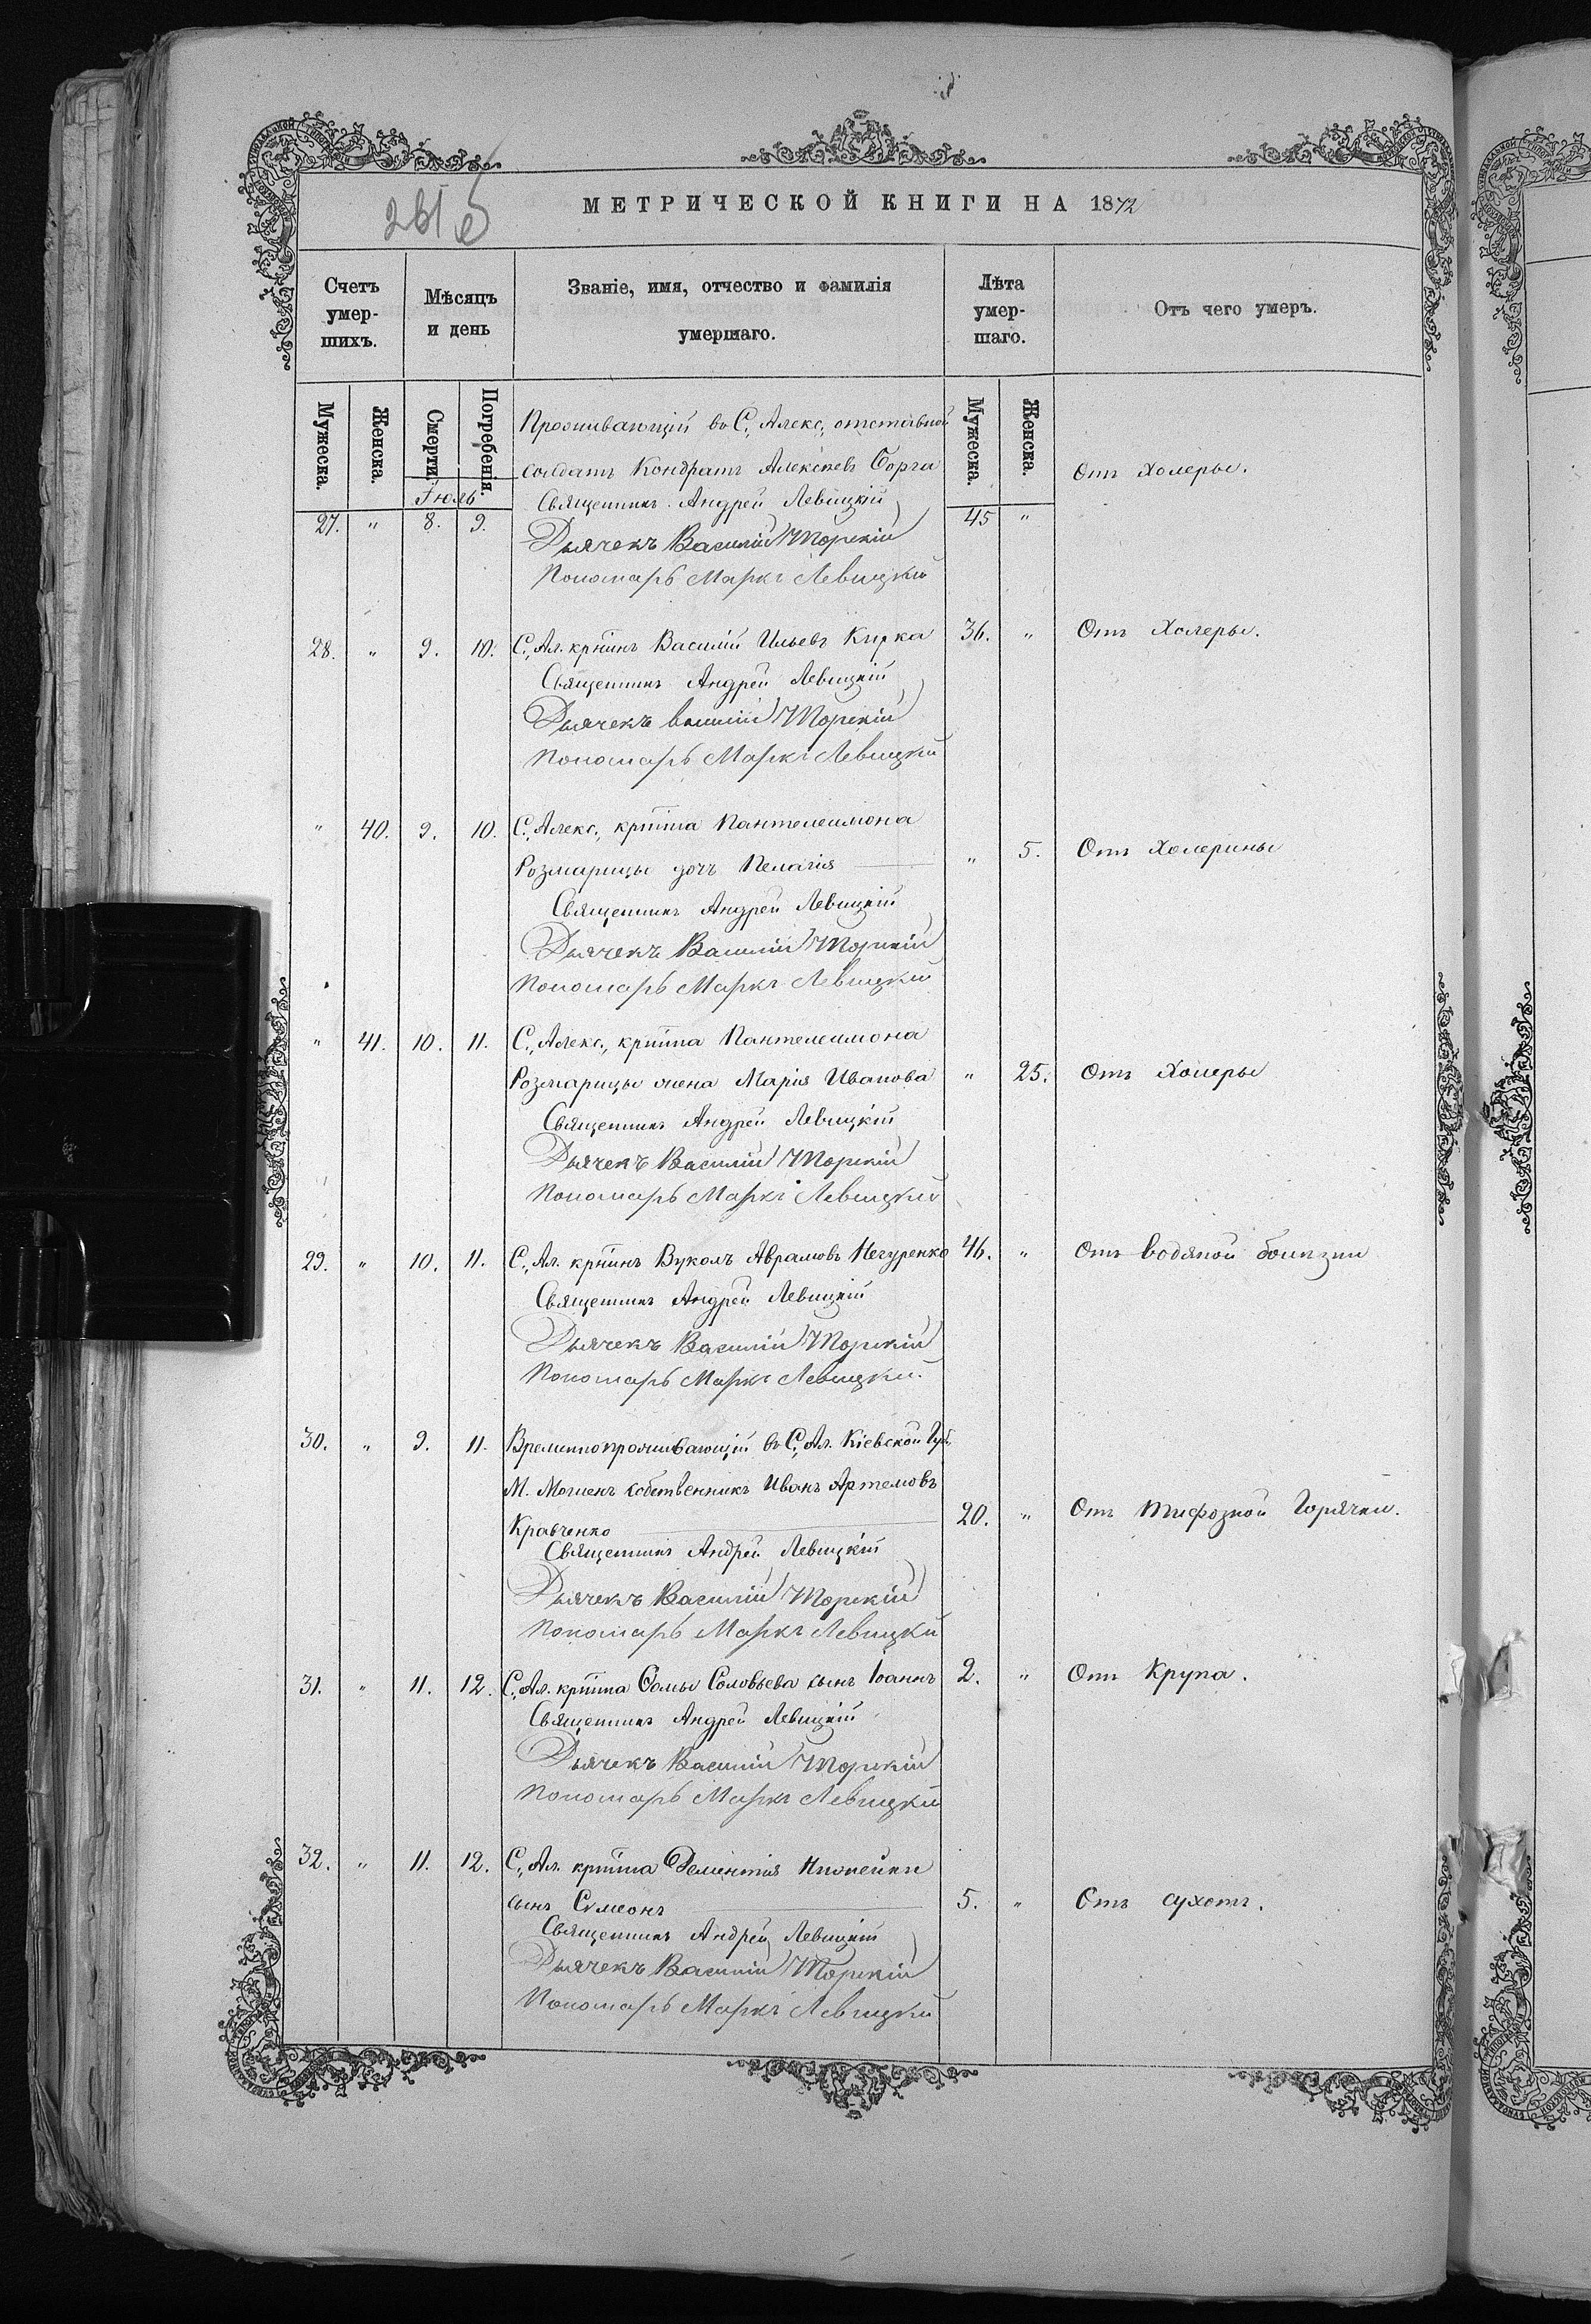 МЕТРИЧЕСКОЙ КНИГИ НА 1872
Счетъ умер-шихъ.
Мѣсяцъ и день
Званіе, имя, отчество и фамилія умершаго.
Лѣта умер-шаго.
Отъ чего умеръ.
Мужеска. Женска. Смерти. Погребенія. Мужеска. Женска.
Іюль
Проживающій въ С., Алекс., отставной
солдатъ Кондратъ Алексѣевъ Борга Отъ Холеры.
Священникъ Андрей Левицкій
27. " 8. 9. 45 "
Дьячекъ Василій Торскій
Пономарь Маркъ Левицкій
28. " 9. 10. С., Ал. кр͞нинъ Василій Ильевъ Кирка 36. " Отъ Холеры.
Священникъ Андрей Левицкій
Дьячекъ Василій Торскій
Пономарь Маркъ Левицкій
" 40. 9. 10. С., Алекс., кр͞нина Пантелеимона
Розмарицы дочь Пелагія " 5. Отъ Холерины
Священникъ Андрей Левицкій
Дьячекъ Василій Торскій
Пономарь Маркъ Левицкій
" 41. 10. 11. С., Алекс., кр͞нина Пантелеимона
Розмарицы жена Марія Иванова " 25. Отъ Холеры
Священникъ Андрей Левицкій
Дьячекъ Василій Торскій
Пономарь Маркъ Левицкій
29. " 10. 11. С., Ал. кр͞нинъ Вуколъ Аврамовъ Нечуренко 46. " Отъ водяной болѣзни
Священникъ Андрей Левицкій
Дьячекъ Василій Торскій
Пономарь Маркъ Левицкій.
30. " 9. 11. Временнопроживающій въ С., Ал. Кіевской Губ.
М. собственникъ Иванъ Артемовъ
Кравченко 20. " Отъ Тифозной Горячки.
Священникъ Андрей Левицкій
Дьячекъ Василій Торскій
Пономарь Маркъ Левицкій
31. " 11. 12. С., Ал. кр͞нина Ѳомы Соловьева сынъ Іоаннъ 2. " Отъ Крупа.
Священникъ Андрей Левицкій
Дьячекъ Василій Торскій
Пономарь Маркъ Левицкій
32. " 11. 12. С., Ал. кр͞нина Дементія
сынъ Сѵмеонъ 5. " Отъ сухотъ.
Священникъ Андрей Левицкій
Дьячекъ Василій Торскій
Пономарь Маркъ Левицкій